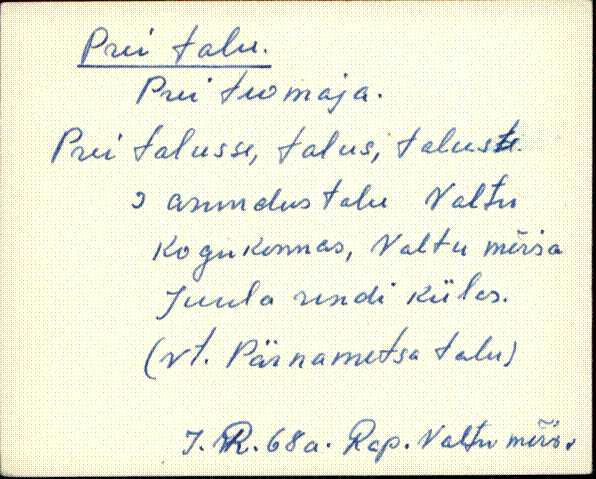 Prei talu.
Prei tuomaja.
Prei talusse, talus, talust.
asundustalu Valtu
kogukonnas, Valtu mõisa
Juula rendi külas.
(vt. Pärnametsa talu)
J. R. 68 a. Rap. Valtu mõis.